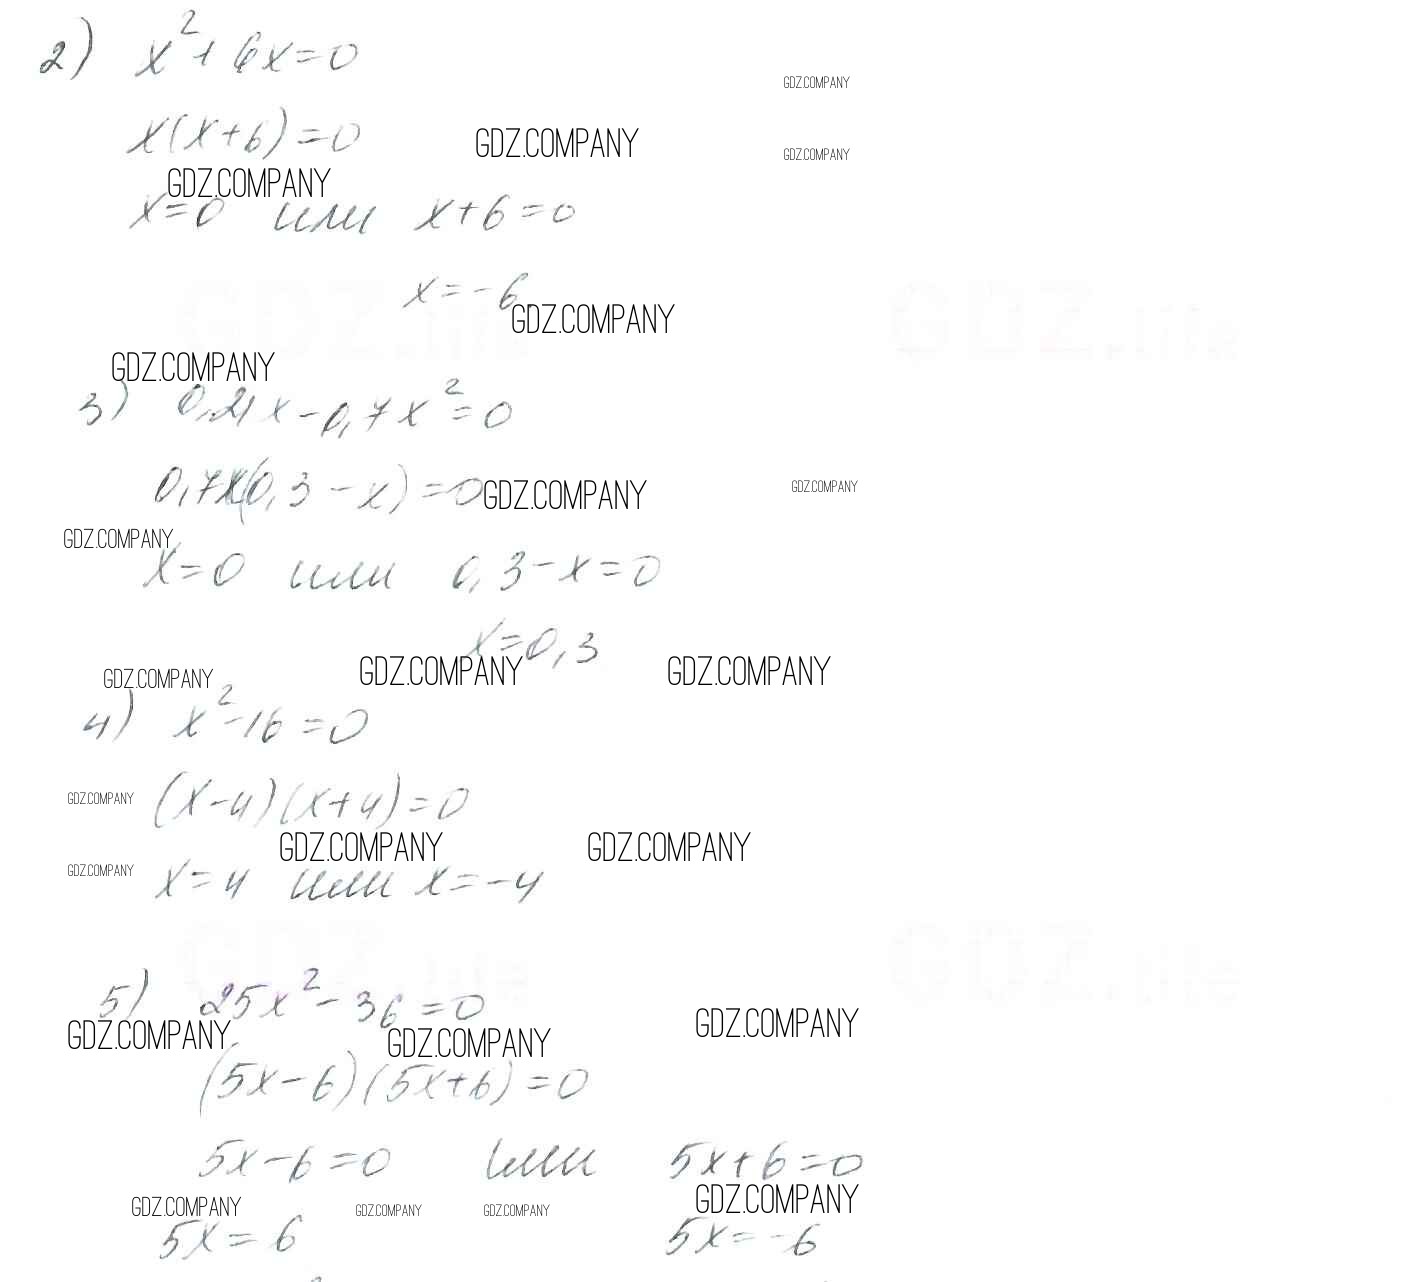 2) x²+6x=0
GDZ.COMPANY
x(x+6)=0
GDZ.COMPANY
GDZ.COMPANY
GDZ.COMPANY
x=0 или x+6=0
x=-6
GDZ.life
GDZ.life
GDZ.COMPANY
GDZ.COMPANY
3) 0,21x-0,7x²=0
0,7x(0,3-x)=0
GDZ.COMPANY
GDZ.COMPANY
GDZ.COMPANY
x=0 или 0,3-x=0
x=0,3
GDZ.COMPANY
GDZ.COMPANY
GDZ.COMPANY
4) x²-16=0
GDZ.COMPANY
(x-4)(x+4)=0
GDZ.COMPANY
GDZ.COMPANY
GDZ.COMPANY
x=4 или x=-4
GDZ.life
GDZ.life
5) 25x²-36=0
GDZ.COMPANY
GDZ.COMPANY
GDZ.COMPANY
(5x-6)(5x+6)=0
5x-6=0 или 5x+6=0
GDZ.COMPANY
GDZ.COMPANY
GDZ.COMPANY
GDZ.COMPANY
5x=6 5x=-6